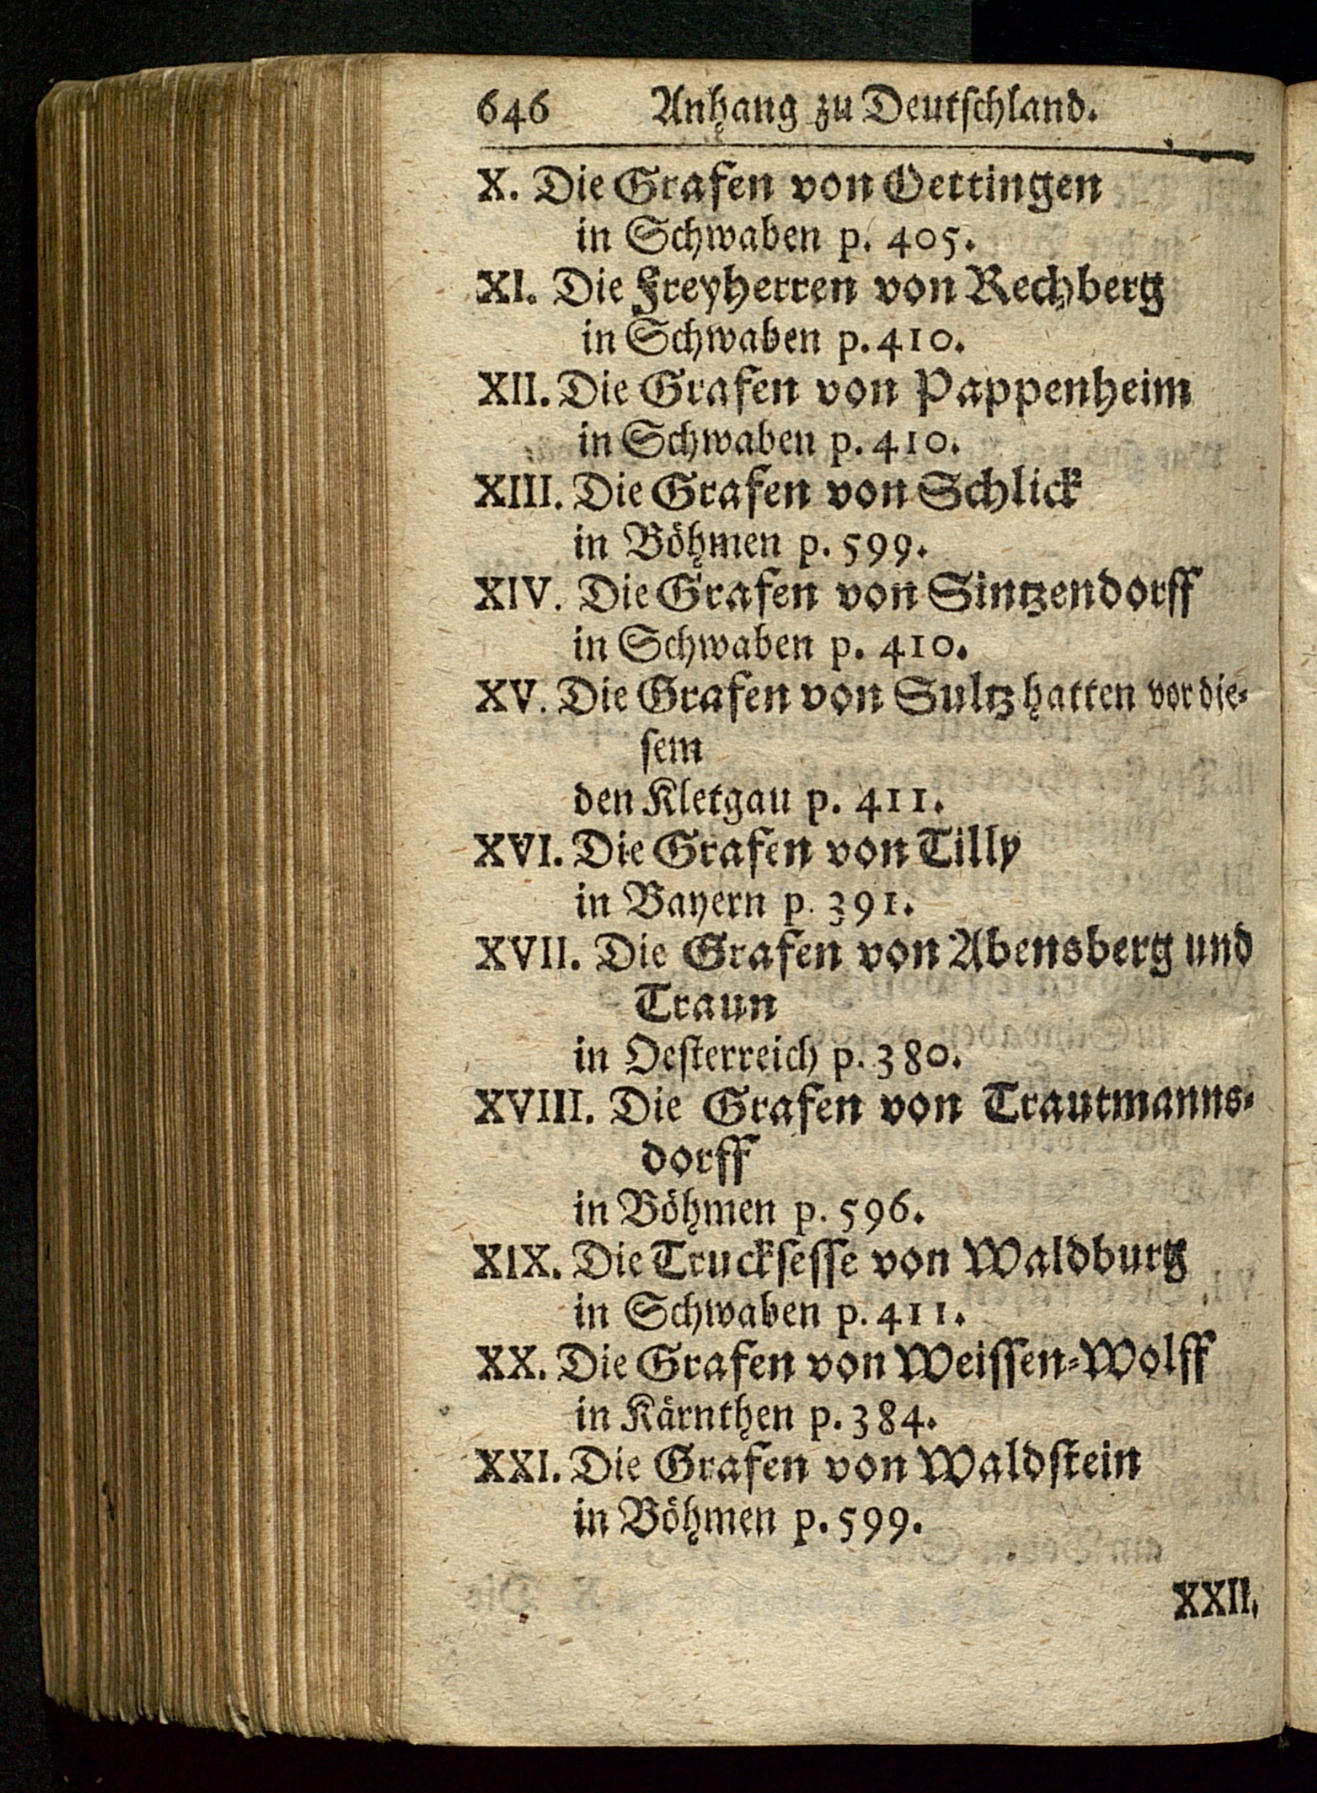 646 Anhang zu Deutschland.
X. Die Grafen von Oettingen
in Schwaben p. 405.
XI. Die Freyherren von Rechberg
in Schwaben p. 410.
XII. Die Grafen von Pappenheim
in Schwaben p. 410.
XIII. Die Grafen von Schlick
in Böhmen p. 599.
XIV. Die Grafen von Sintzendorff
in Schwaben p. 410.
XV. Die Grafen von Sultz hatten vor die-
sem
den Kletgau p. 411.
XVI. Die Grafen von Tilly
in Bayern p. 391.
XVII. Die Grafen von Abensberg und
Traun
in Oesterreich p. 380.
XVIII. Die Grafen von Trautmanns-
dorff
in Böhmen p. 596.
XIX. Die Trucksesse von Waldburg
in Schwaben p. 411.
XX. Die Grafen von Weissen-Wolff
in Kärnthen p. 384.
XXI. Die Grafen von Waldstein
in Böhmen p. 599.
XXII.